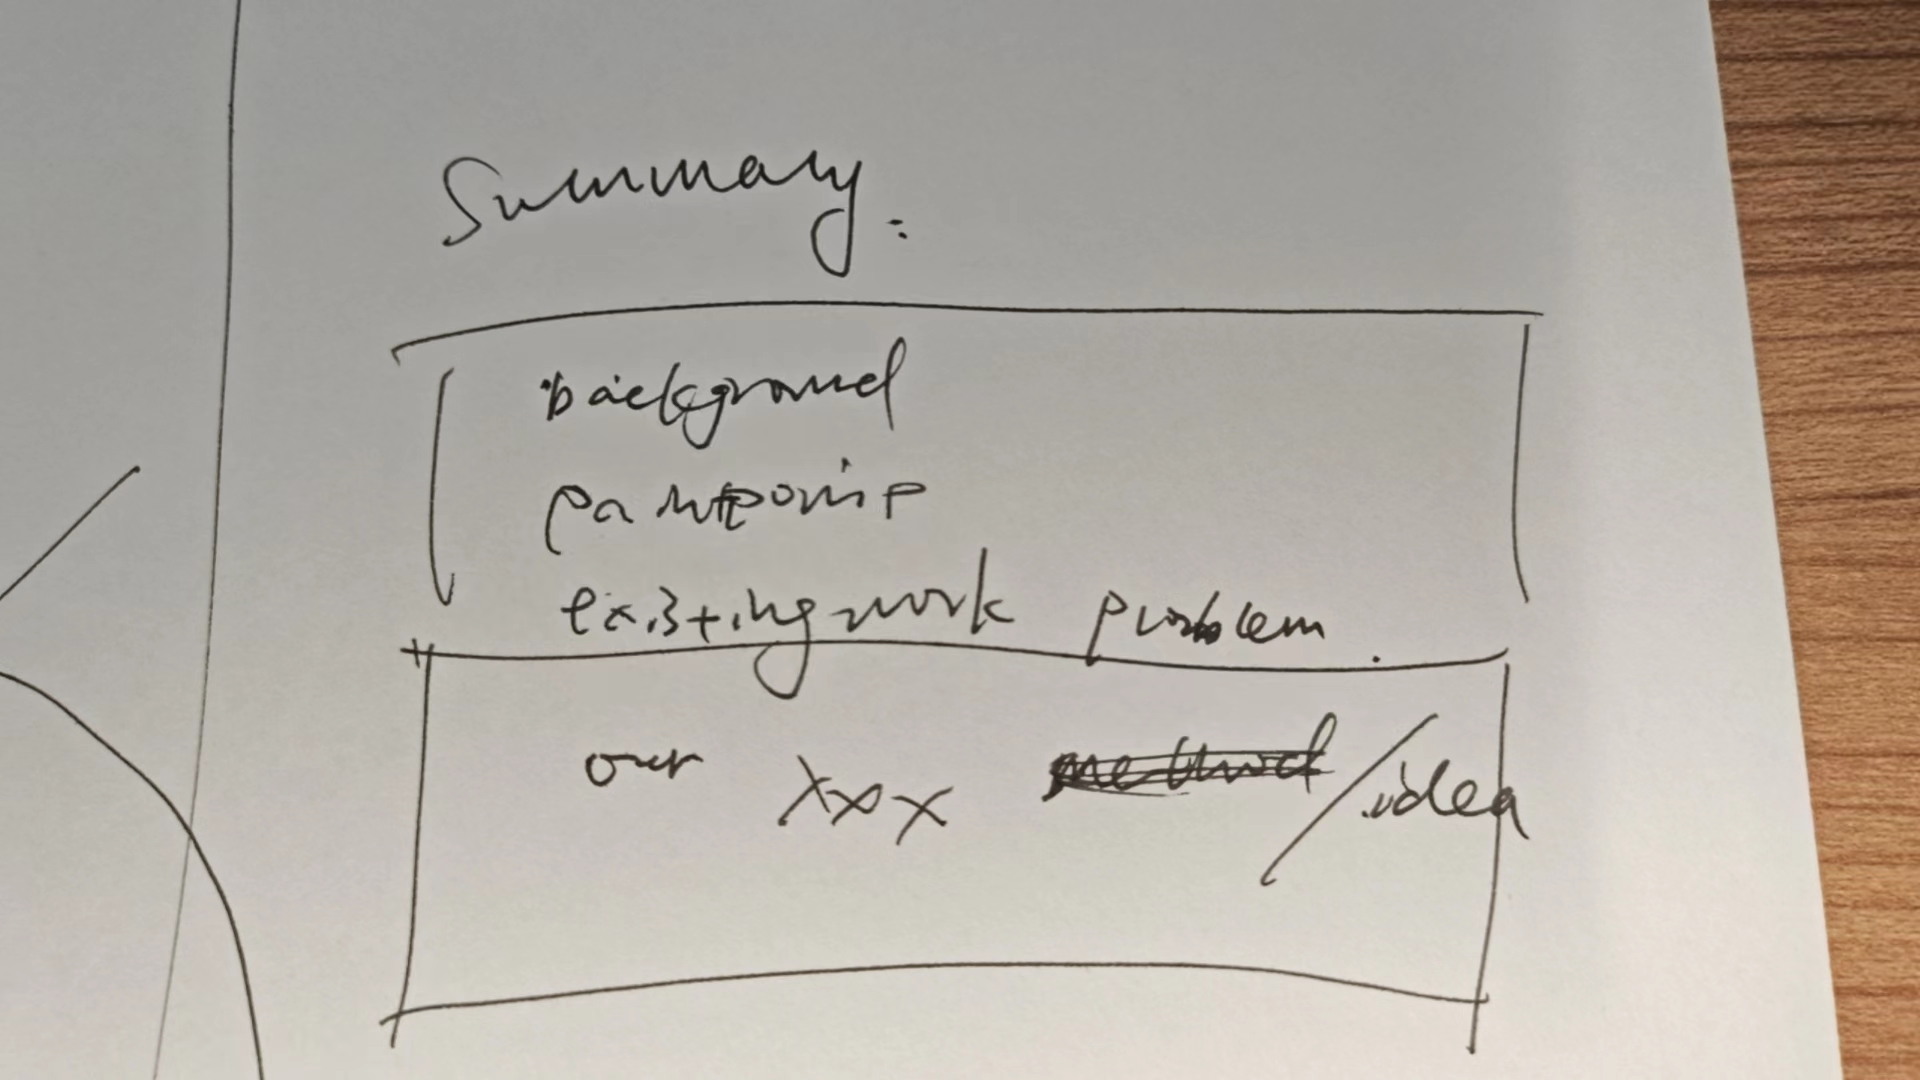 Summary:
background
painpoint
existing work problem.
our xxx method / idea